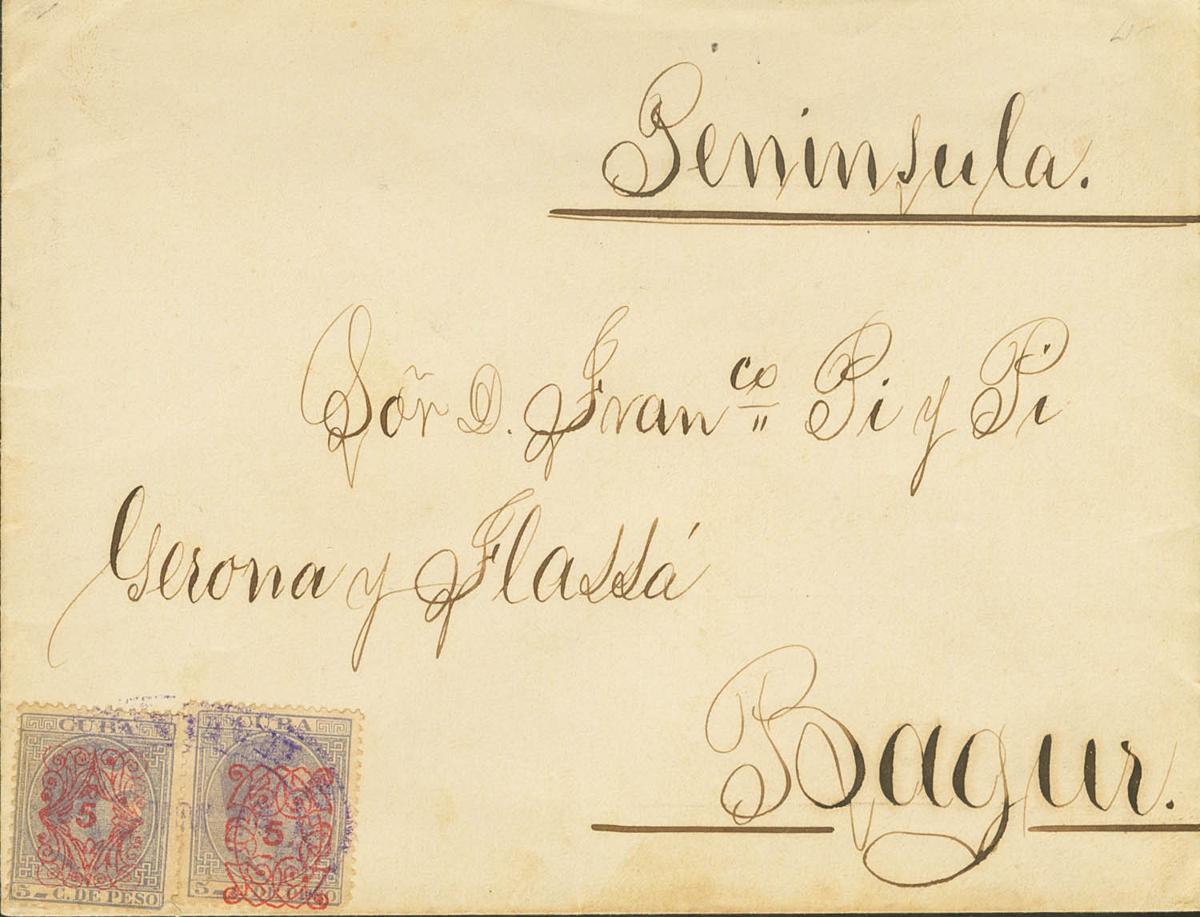 Peninsula.
Sõr D. Fran.co Pi y Pi
Gerona y Flassá
Bagur.
CUBA
5
5 C. DE PESO
CUBA
5
5 C. DE PESO